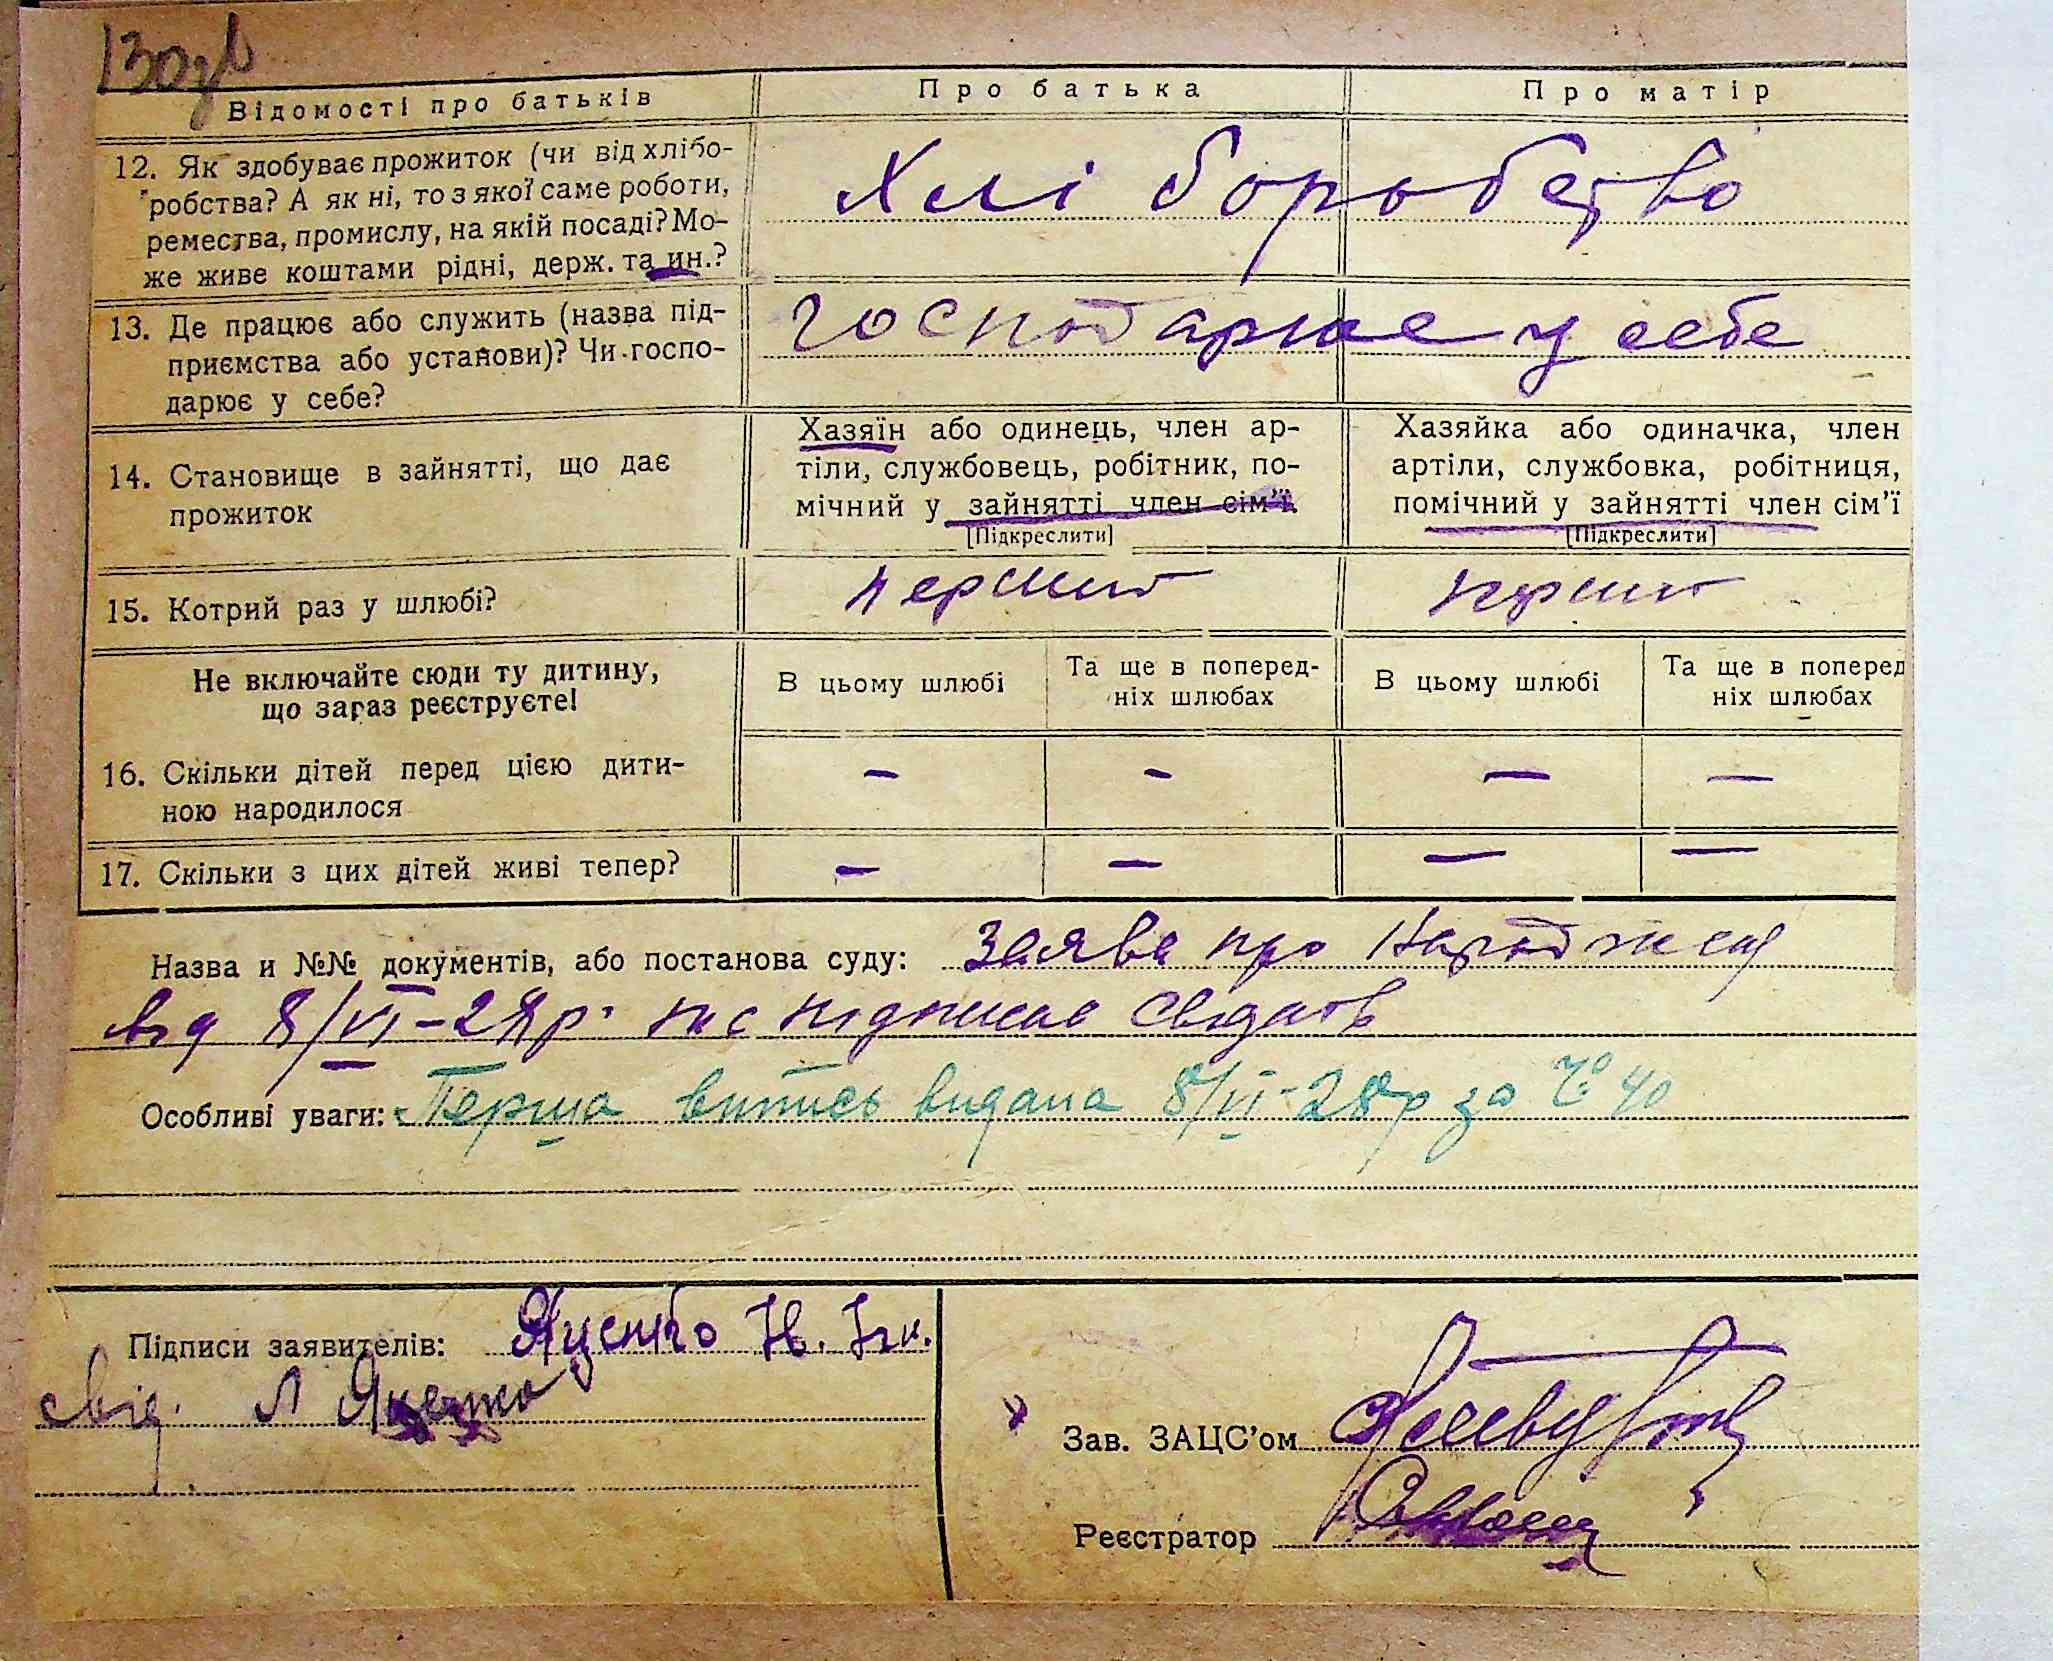 130зв
Відомості про батьків
Про батька
Про матір
12. Як здобуває прожиток (чи від хлібо-
робства? А як ні, то з якої саме роботи,
ремества, промислу, на якій посаді? Мо-
же живе коштами рідні, держ. та ин.?
Хлі борьбство
13. Де працює або служить (назва під-
приємства або установи)? Чи госпо-
дарює у себе?
господарює у себе
14. Становище в зайнятті, що дає
прожиток
Хазяїн або одинець, член ар-
тіли, службовець, робітник, по-
мічний у зайнятті член сім'ї
[Підкреслити]
Хазяйка або одиначка, член
артіли, службовка, робітниця,
помічний у зайнятті член сім'ї
[Підкреслити]
15. Котрий раз у шлюбі?
перший
перший
Не включайте сюди ту дитину,
що зараз реєструєте!
В цьому шлюбі
Та ще в поперед-
ніх шлюбах
В цьому шлюбі
Та ще в поперед
ніх шлюбах
16. Скільки дітей перед цією дити-
ною народилося
– – – –
17. Скільки з цих дітей живі тепер?
– – – –
Назва и №№ документів, або постанова суду: Заява про
від 8/VI–28р.
Особливі уваги: Перша випись видана 8/VI–28р за № 40
Підписи заявителів: Яценко Н.
свід. Л Яценко
Зав. ЗАЦС'ом
Реєстратор